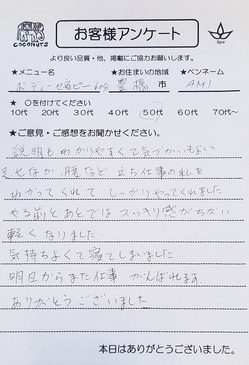 COCONUTS
お客様アンケート
spa
より良い品質・他、掲載にご協力お願いします。
★メニュー名 ★お住まいの地域 ★ペンネーム
ボディーセラピー60分 豊橋 市 AMI
★ ○を付けてください
10代 20代 30代 40代 50代 60代 70代～
★ご意見・ご感想をお聞かせください。
説明もわかりやすくて気づかいもよい
足せなか、腰など立ち仕事の私を
わかってくれて しっかりやってくれました
やる前とあとでは スッキリ感がちがい
軽くなりました
気持ちよくて寝てしまいました
明日からまた仕事 がんばれます
ありがとうございました
本日はありがとうございました。